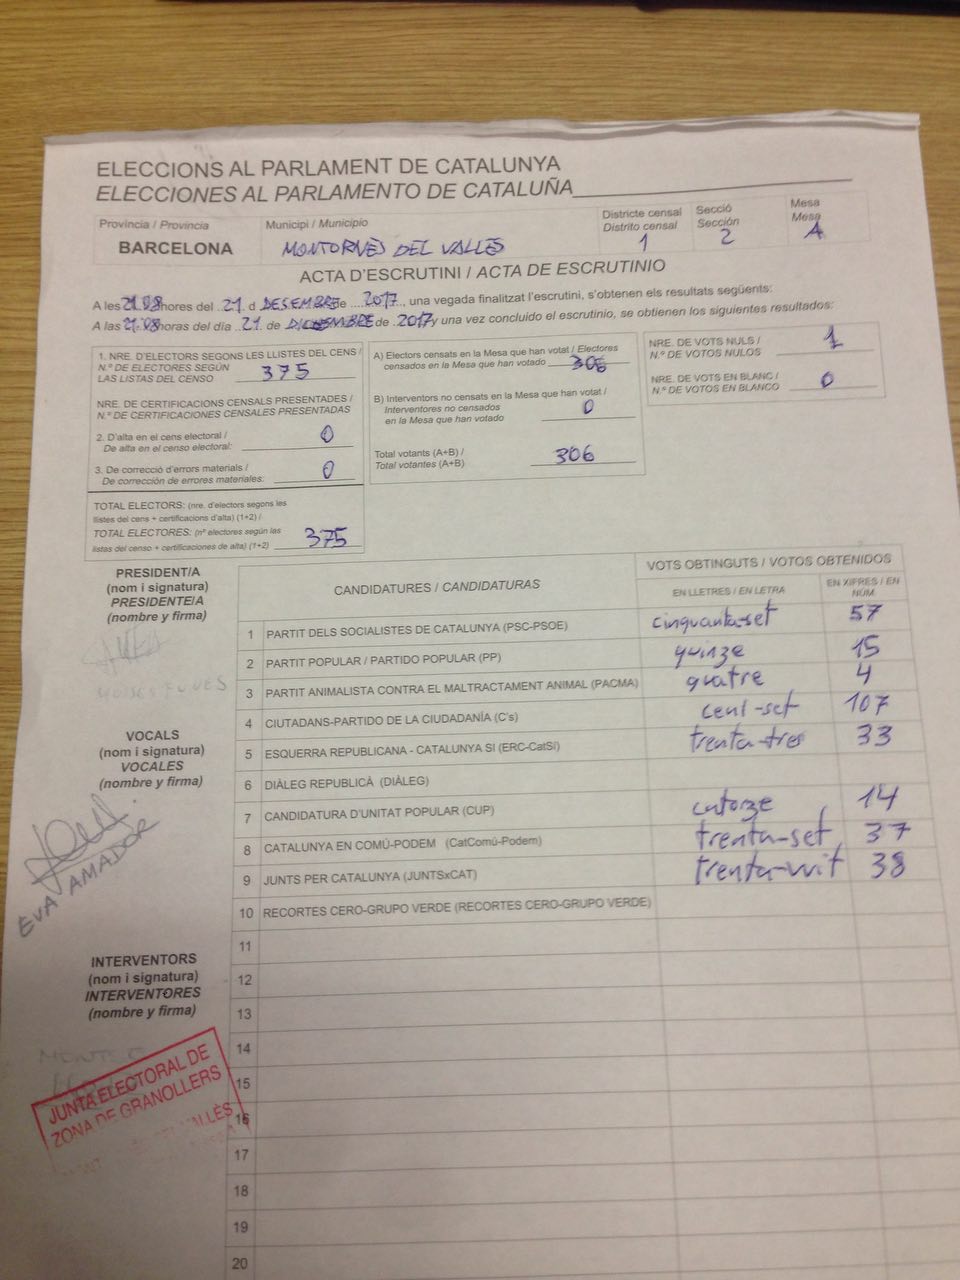 ELECCIONS AL PARLAMENT DE CATALUNYA
ELECCIONES AL PARLAMENTO DE CATALUÑA
Província / Provincia
BARCELONA
Municipi / Municipio
MONTORNÈS DEL VALLÈS
Districte censal
Distrito censal
1
Secció
Sección
2
Mesa
Mesa
A
ACTA D'ESCRUTINI / ACTA DE ESCRUTINIO
A les 21.08 hores del 21 d DESEMBRE de 2017, una vegada finalitzat l'escrutini, s'obtenen els resultats següents:
A las 21:08 horas del día 21 de DICIEMBRE de 2017 y una vez concluido el escrutinio, se obtienen los siguientes resultados:
1. NRE. D'ELECTORS SEGONS LES LLISTES DEL CENS /
N.º DE ELECTORES SEGÚN
LAS LISTAS DEL CENSO 375
NRE. DE CERTIFICACIONS CENSALS PRESENTADES /
N.º DE CERTIFICACIONES CENSALES PRESENTADAS
2. D'alta en el cens electoral /
De alta en el censo electoral: 0
3. De correcció d'errors materials /
De corrección de errores materiales: 0
TOTAL ELECTORS: (nre. d'electors segons les
llistes del cens + certificacions d'alta) (1+2) /
TOTAL ELECTORES: (nº electores según las
listas del censo + certificaciones de alta) (1+2) 375
A) Electors censats en la Mesa que han votat / Electores
censados en la Mesa que han votado 306
B) Interventors no censats en la Mesa que han votat /
Interventores no censados
en la Mesa que han votado 0
Total votants (A+B) /
Total votantes (A+B) 306
NRE. DE VOTS NULS /
N.º DE VOTOS NULOS 1
NRE. DE VOTS EN BLANC /
N.º DE VOTOS EN BLANCO 0
PRESIDENT/A
(nom i signatura)
PRESIDENTE/A
(nombre y firma)
VOCALS
(nom i signatura)
VOCALES
(nombre y firma)
EVA AMADOR
INTERVENTORS
(nom i signatura)
INTERVENTORES
(nombre y firma)
JUNTA ELECTORAL DE
ZONA DE GRANOLLERS
CANDIDATURES / CANDIDATURAS
VOTS OBTINGUTS / VOTOS OBTENIDOS
EN LLETRES / EN LETRA
EN XIFRES / EN
NÚM
1 PARTIT DELS SOCIALISTES DE CATALUNYA (PSC-PSOE) cinquanta-set 57
2 PARTIT POPULAR / PARTIDO POPULAR (PP) quinze 15
3 PARTIT ANIMALISTA CONTRA EL MALTRACTAMENT ANIMAL (PACMA) quatre 4
4 CIUTADANS-PARTIDO DE LA CIUDADANÍA (C's) cent-set 107
5 ESQUERRA REPUBLICANA - CATALUNYA SI (ERC-CatSí) trenta-tres 33
6 DIÀLEG REPUBLICÀ (DIÀLEG)
7 CANDIDATURA D'UNITAT POPULAR (CUP) catorze 14
8 CATALUNYA EN COMÚ-PODEM (CatComú-Podem) trenta-set 37
9 JUNTS PER CATALUNYA (JUNTSxCAT) trenta-vuit 38
10 RECORTES CERO-GRUPO VERDE (RECORTES CERO-GRUPO VERDE)
11
12
13
14
15
16
17
18
19
20